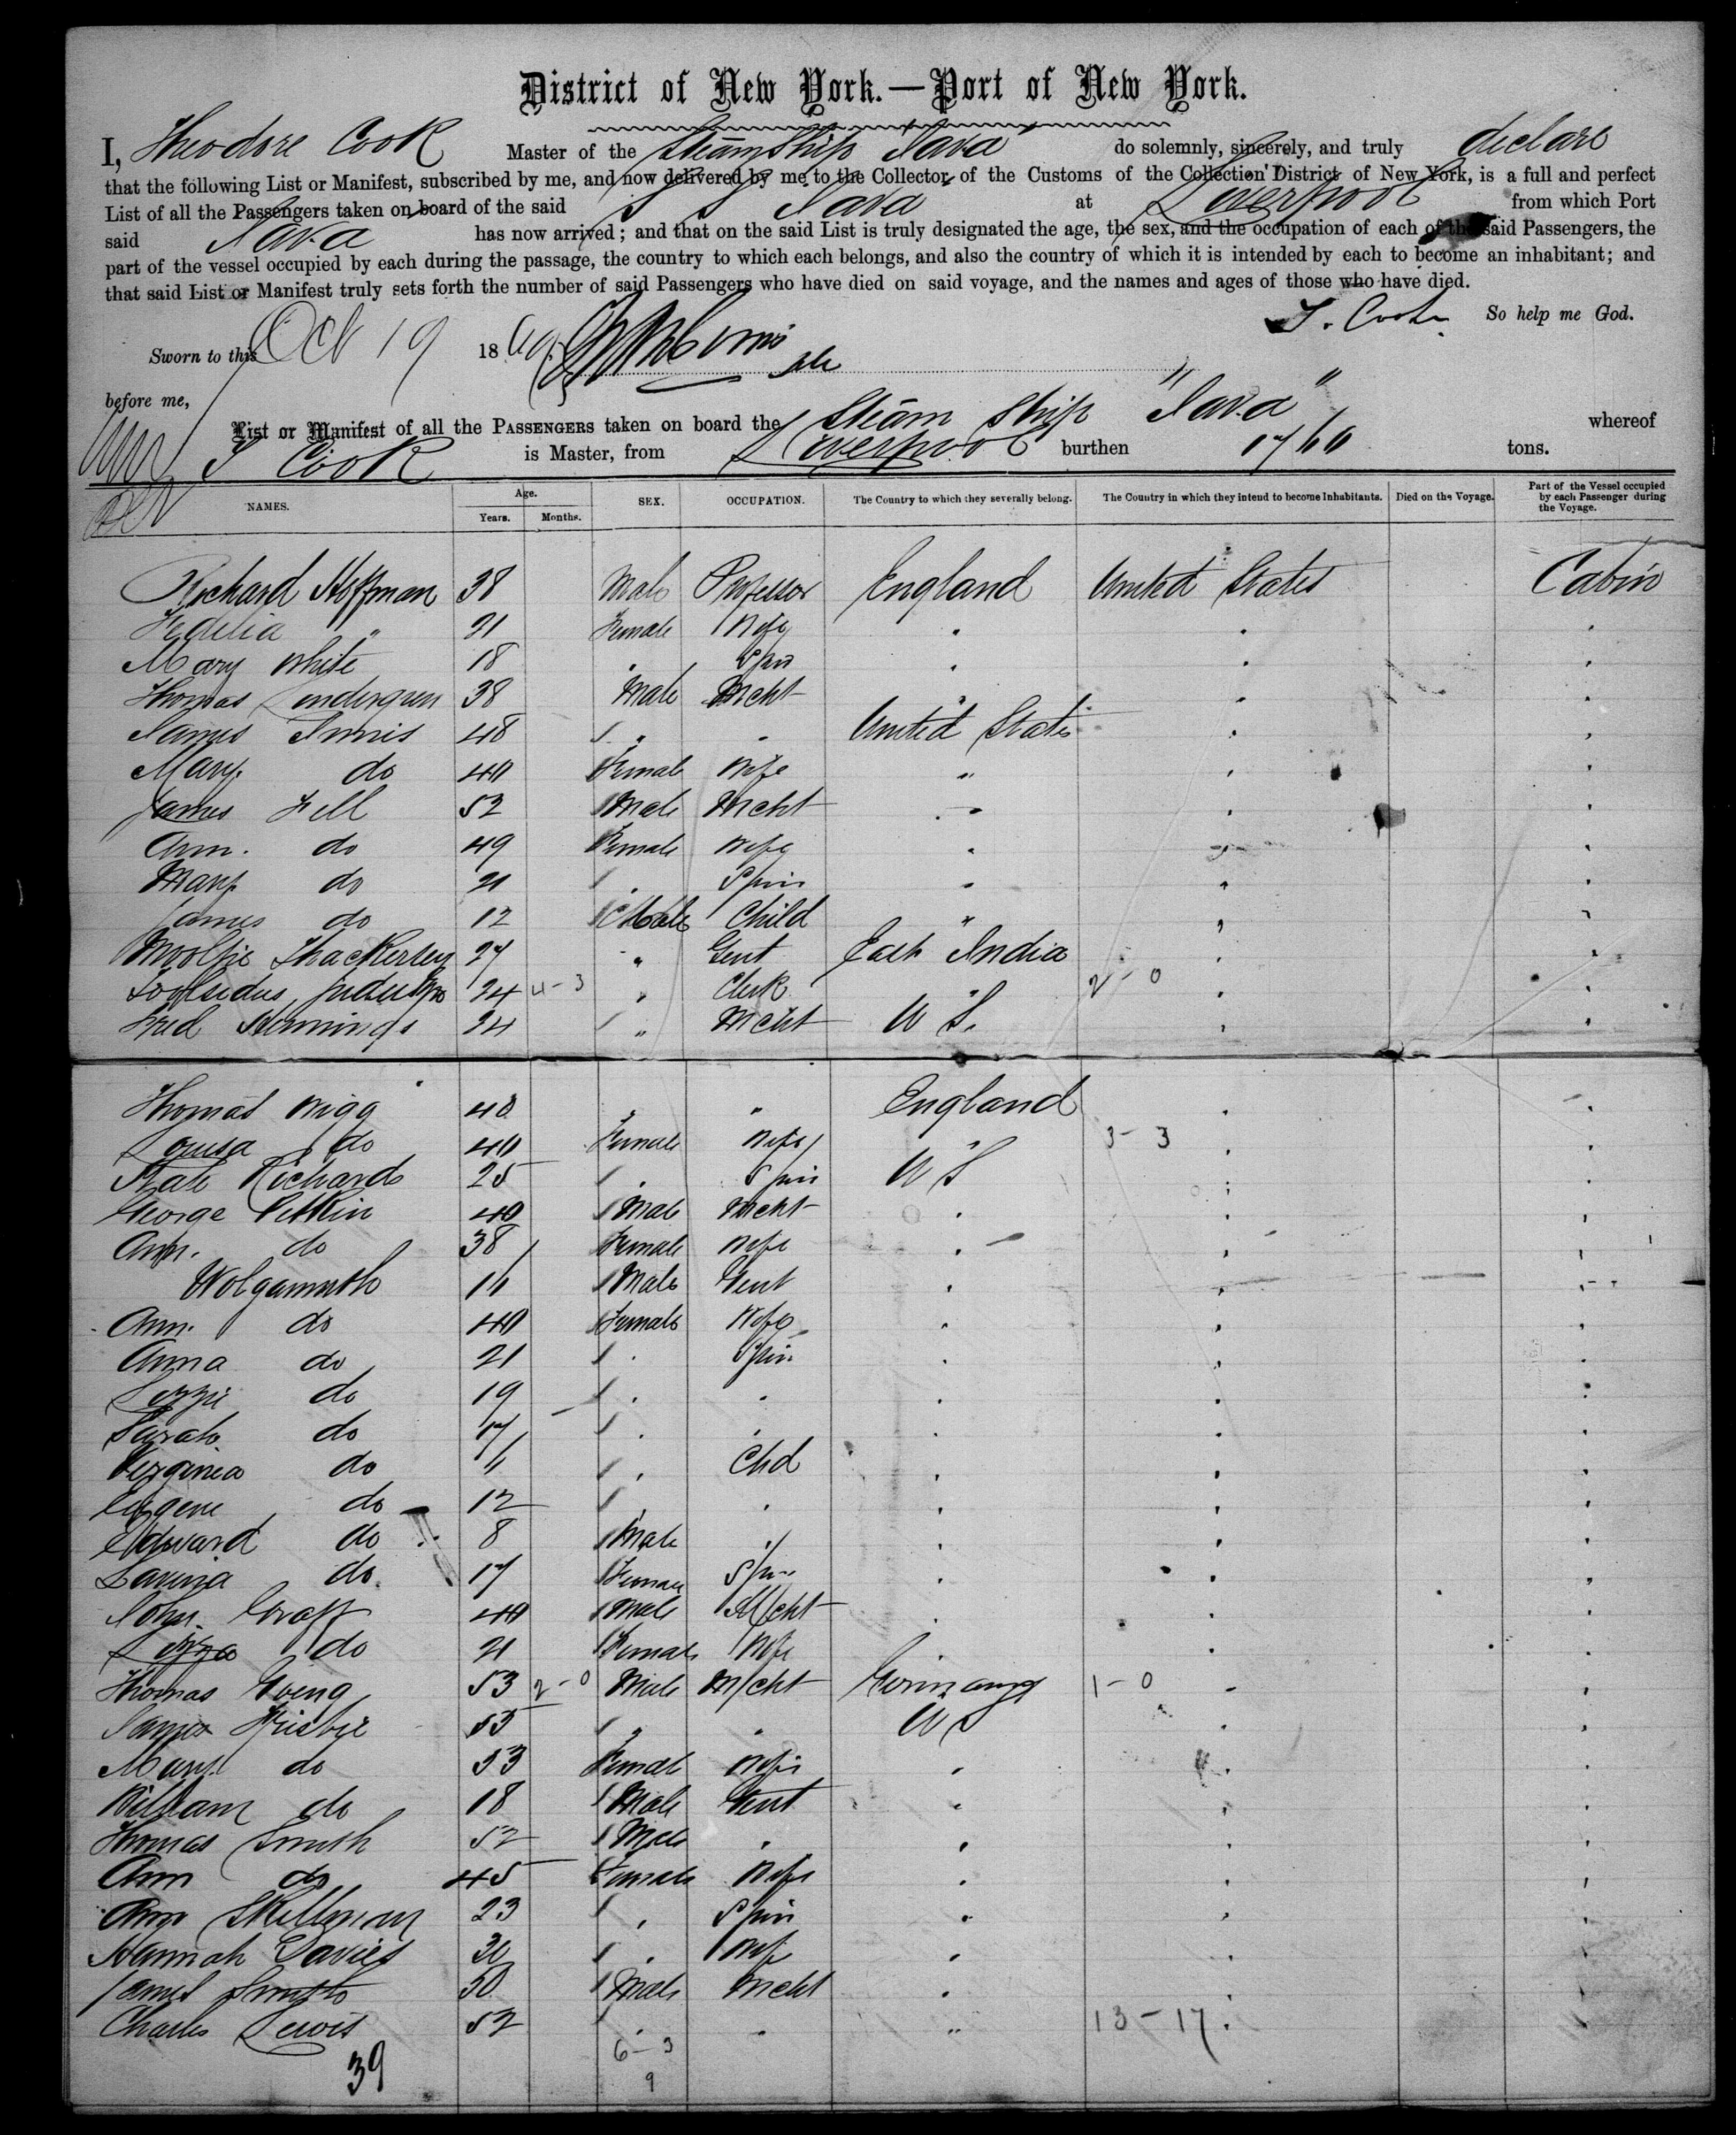 District of New York.—Port of New York.
I, Theodore Cook Master of the Steam Ship Java do solemnly, sincerely, and truly declare
that the following List or Manifest, subscribed by me, and now delivered by me to the Collector of the Customs of the Collection District of New York, is a full and perfect
List of all the Passengers taken on board of the said S S Java at Liverpool from which Port
said Java has now arrived; and that on the said List is truly designated the age, the sex, and the occupation of each of the said Passengers, the
part of the vessel occupied by each during the passage, the country to which each belongs, and also the country of which it is intended by each to become an inhabitant; and
that said List or Manifest truly sets forth the number of said Passengers who have died on said voyage, and the names and ages of those who have died.
T. Cook So help me God.
Sworn to this Oct 19 1869
before me,
List or Manifest of all the PASSENGERS taken on board the Steam Ship "Java" whereof
T Cook is Master, from Liverpool burthen 1766 tons.
NAMES. Age. Years. Months. SEX. OCCUPATION. The Country to which they severally belong. The Country in which they intend to become Inhabitants. Died on the Voyage. Part of the Vessel occupied by each Passenger during the Voyage.
Richard Hoffman 38 Male Professor England United States Cabin
Fidelia " 21 Female Wife " " "
Mary White 18 " Spin " " "
Thomas 38 Male Mcht " " "
James Innis 48 " " United States " "
Mary do 40 Female Wife " " "
James Fell 52 Male Mcht " " "
Ann. do 49 Female Wife " " "
Mary do 21 " Spin " " "
James do 12 Male Child " " "
Mooljie Thackersey 27 " Gent East India " "
24 4-3 " Clerk " 2-0 " "
Fred Hemmings 24 " Mcht U S. " "
Thomas Wigg 40 " " England " "
Louisa do 40 Female Wife " 3-3 " "
Kate Richards 25 " Spin U S " "
George Pitkin 40 Male Mcht " " "
Ann. do 38 Female Wife " " "
Wolgamuth Male Gent " " "
Ann. do 40 Female Wife " " "
Anna do 21 " Spin " " "
Lizzie do 19 " " " " "
Sarah do 17 " " " " "
Virginia do " Chd " " "
Eugene do 12 " " " " "
Edward do 8 Male " " " "
Lavinia do. 17 Female Spin " " "
John. Graff 40 Male Mcht " " "
do 21 Female Wife " " "
Thomas 53 2-0 Male Mcht Germany 1-0 " "
James Frisbie 55 " " U S " "
Mary do 53 Female Wife " " "
William do 18 Male Gent " " "
Thomas Smith 52 Male " " " "
Ann do 45 Female Wife " " "
Ann Skillman 23 " Spin " " "
Hannah Davies 30 " Wife " " "
James Smith 50 Male Mcht " " "
Charles Lewis 52 " " " 13-17 " "
6-3
39
9